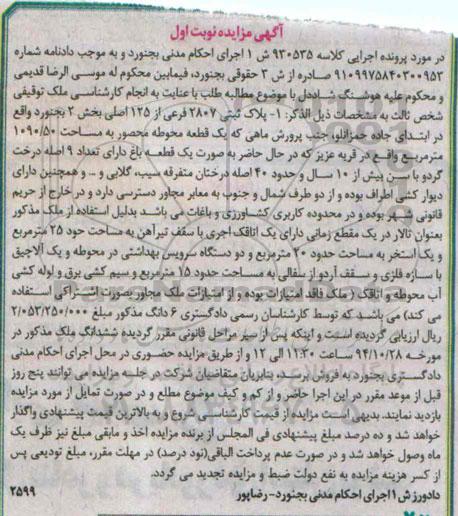 آگهی مزایده نوبت اول
در مورد پرونده اجرایی کلاسه ۹۳۰۵۳۵ ش ۱ اجرای احکام مدنی بجنورد و به موجب دادنامه شماره
۹۱۰۹۹۷۵۸۴۰۳۰۰۹۵۳ صادره از ش ۳ حقوقی بجنورد، فیمابین محکوم له موسی الرضا قدیمی
و محکوم علیه هوشنگ شاددل با موضوع مطالبه طلب با عنایت به انجام کارشناسی ملک توقیفی
شخص ثالث به مشخصات ذیل الذکر: ۱- پلاک ثبتی ۲۸۰۷ فرعی از ۱۲۵ اصلی بخش ۲ بجنورد واقع
در ابتدای جاده حمزانلو، جنب پرورش ماهی که یک قطعه محوطه محصور به مساحت ۱۰۹۰/۵۰
مترمربع واقع در قریه عزیز که در حال حاضر به صورت یک قطعه باغ دارای تعداد ۹ اصله درخت
گردو با سن بیش از ۱۰ سال و حدود ۴۰ اصله درختان متفرقه سیب، گلابی و ... و همچنین دارای
دیوار کشی اطراف بوده و از دو طرف شمال و جنوب به معابر مجاور دسترسی دارد و در خارج از حریم
قانونی شهر بوده و در محدوده کاربری کشاورزی و باغات می باشد بدلیل استفاده از ملک مذکور
بعنوان تالار در یک مقطع زمانی دارای یک اتاقک آجری با سقف تیرآهن به مساحت حود ۲۵ مترمربع
و یک استخر به مساحت حدود ۲۰ مترمربع و دو دستگاه سرویس بهداشتی در محوطه و یک آلاچیق
با سازه فلزی و سقف آردو از سفالی به مساحت حدود ۱۵ مترمربع و سیم کشی برق و لوله کشی
آب محوطه و اتاقک ( ملک فاقد امتیازات بوده و از امتیازات ملک مجاور بصورت اشتراکی استفاده
می کند) می باشد که توسط کارشناسان رسمی دادگستری ۶ دانگ مذکور مبلغ ۲/۰۵۳/۲۵۰/۰۰۰
ریال ارزیابی گردیده است و اینکه پس از سیر مراحل قانونی مقرر گردیده ششدانگ ملک مذکور در
مورخه ۹۴/۱۰/۲۸ ساعت ۱۱:۳۰ الی ۱۲ و از طریق مزایده حضوری در محل اجرای احکام مدنی
دادگستری بجنورد به فروش برسد، بنابریان متقاضیان شرکت در جلسه مزایده می توانند پنج روز
قبل از موعد مقرر در این اجرا حاضر و از کم و کیف موضوع مطلع و در صورت تمایل از مورد مزایده
بازدید نمایند. بدیهی است مزایده از قیمت کارشناسی شروع و به بالاترین قیمت پیشنهادی واگذار
خواهد شد و ده درصد مبلغ پیشنهادی فی المجلس از برنده مزایده اخذ و مابقی مبلغ نیز ظرف یک
ماه وصول خواهد شد و در صورت عدم پرداخت الباقی(نود درصد) در مهلت مقرر، مبلغ تودیعی پس
از کسر هزینه مزایده به نفع دولت ضبط و مزایده تجدید می گردد.
دادورز ش ۱ اجرای احکام مدنی بجنورد- رضاپور ۲۵۹۹